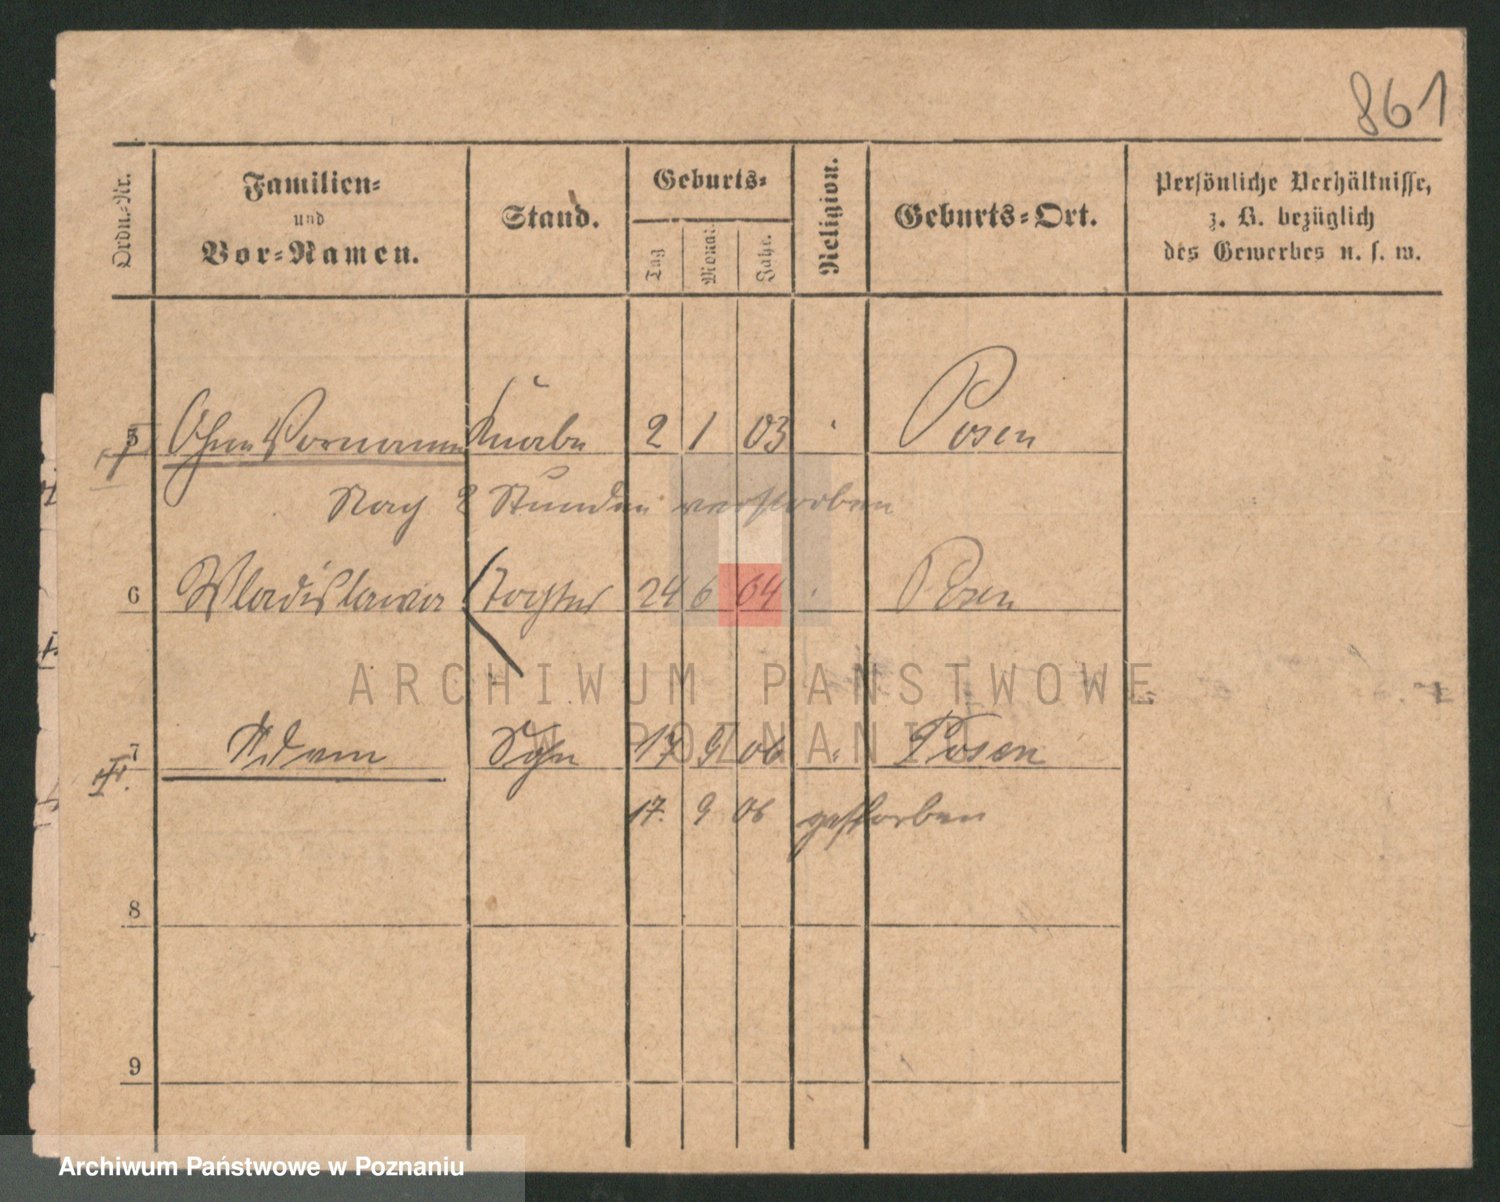 861
Ordn.-Nr.
Familien-
und
Vor-Namen.
Stand.
Geburts-
Tag
Monat.
Jahr.
Religion.
Geburts-Ort.
Persönliche Verhältnisse,
z. B. bezüglich
des Gewerbes u. s. w.
5 Ohne Vornamen Knabe 2 1 03 Posen
Nach 2 Stunden verstorben
6 Wladislawa Tochter 24 6 04 Posen
ARCHIWUM PAŃSTWOWE
W POZNANIU
7 Adam Sohn 17 9 06 Posen
17. 9 06 gestorben
8
9
Archiwum Państwowe w Poznaniu